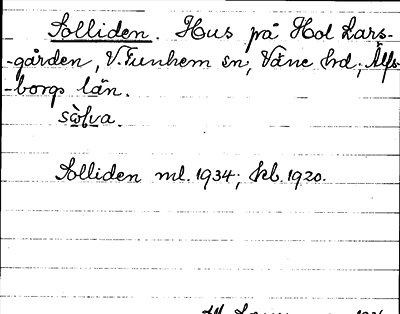 Solliden. Hus på Hol Lars-
-gården, V. Tunhem sn, Väne hd, Älfs-
-borgs län.
Solliden ml. 1934; kb. 1920.